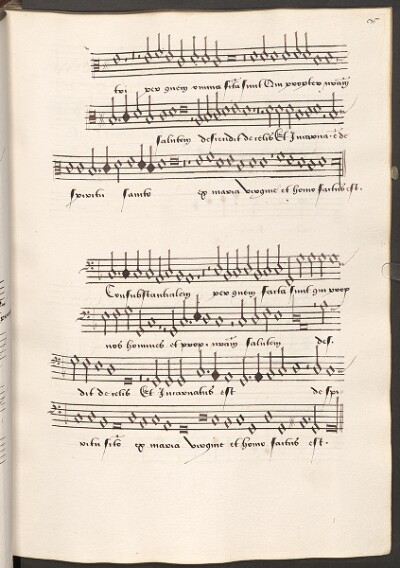 tri per quem omnia facta sunt Qui propter nram
salutem descendit de celis Et Incarnat e de
spiritu sancto ex maria virgine et homo factus est.
Consubstantialem per quem facta sunt qui prop
nos homines et prop. nram salutem des.
dit de celis Et Incarnatus est de spi
ritu scto ex maria virgine et homo factus est.